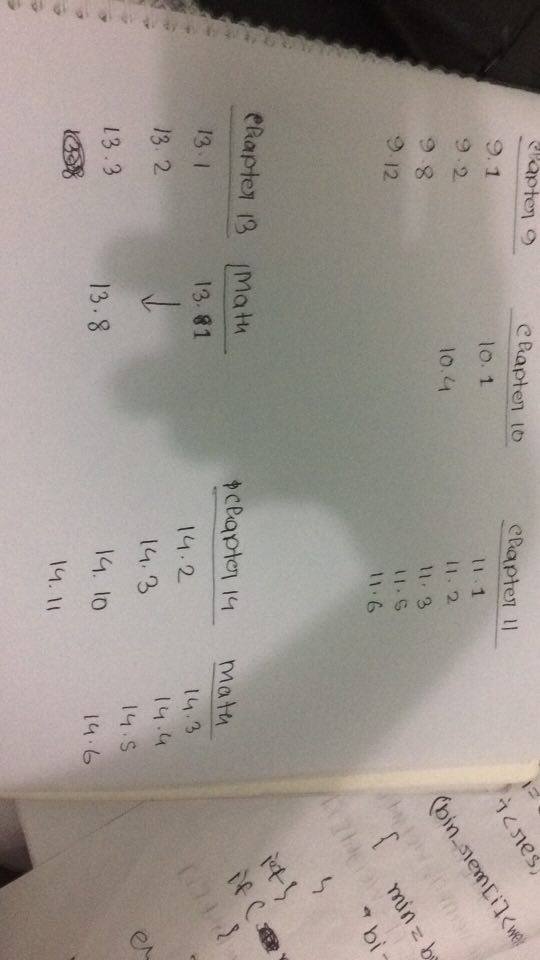 Chapter 9
9.1
9.2
9.8
9.12
Chapter 10
10.1
10.4
Chapter 11
11.1
11.2
11.3
11.5
11.6
Chapter 13
13.1
13.2
13.3
Math
13.1
↓
13.8
Chapter 14
14.2
14.3
14.10
14.11
Math
14.3
14.4
14.5
14.6
{
min =
}
if (
}